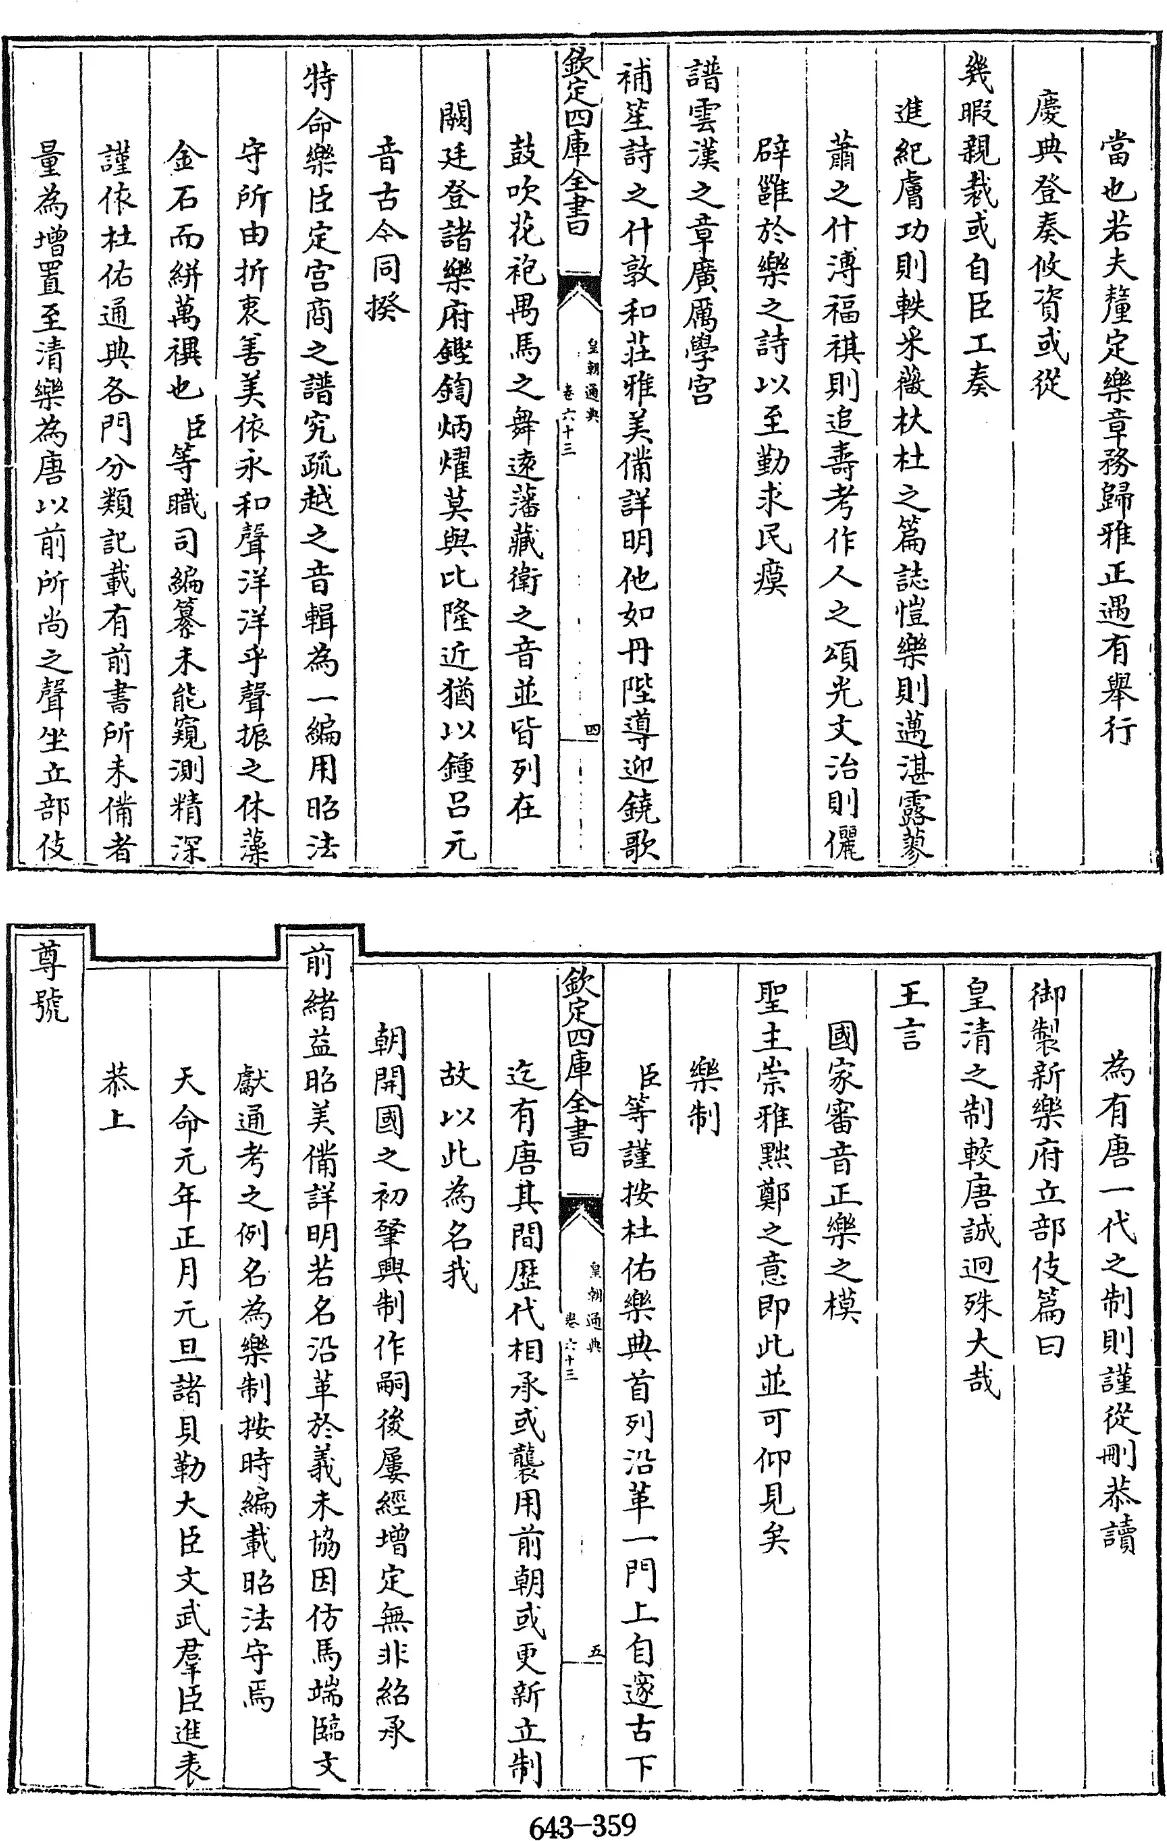 當也若夫釐定樂章務歸雅正遇有舉行
慶典登奏攸資或從
幾暇親裁或自臣工奏
進紀膚功則軼采薇杕杜之篇誌愷樂則邁湛露蓼
蕭之什溥福祺則追壽考作人之頌光文治則儷
辟雝於樂之詩以至勤求民瘼
譜雲漢之章廣厲學宮
補笙詩之什敦和莊雅美備詳明他如丹陛導迎鐃歌
欽定四庫全書
皇朝通典
卷六十三
四
鼓吹花袍禺馬之舞逺藩藏衛之音並皆列在
闕廷登諸樂府鏗鍧炳燿莫與比隆近猶以鍾呂元
音古今同揆
特命樂臣定宮商之譜究疏越之音輯為一編用昭法
守所由折衷善美依永和聲洋洋乎聲振之休藻
金石而絣萬禩也臣等職司編纂未能窺測精深
謹依杜佑通典各門分類記載有前書所未備者
量為增置至清樂為唐以前所尚之聲坐立部伎
為有唐一代之制則謹從刪恭讀
御製新樂府立部伎篇曰
皇清之制較唐誠迥殊大哉
王言
國家審音正樂之模
聖主崇雅黜鄭之意即此並可仰見矣
樂制
臣等謹按杜佑樂典首列沿革一門上自邃古下
欽定四庫全書
皇朝通典
卷六十三
五
迄有唐其間歷代相承或襲用前朝或更新立制
故以此為名我
朝開國之初肇興制作嗣後屢經增定無非紹承
前緒益昭美備詳明若名沿革於義未協因仿馬端臨文
獻通考之例名為樂制按時編載昭法守焉
天命元年正月元旦諸貝勒大臣文武羣臣進表
恭上
尊號
643-359